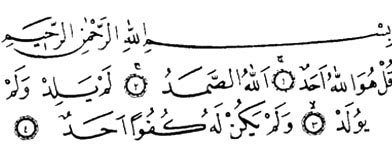 بِسْمِ اللهِ الرَّحْمٰنِ الرَّحِيْمِ
قُلْ هُوَ اللهُ اَحَدٌ ۚ ١ اَللهُ الصَّمَدُ ۚ ٢ لَمْ يَلِدْ وَلَمْ
يُوْلَدْ ۙ ٣ وَلَمْ يَكُنْ لَّهُ كُفُوًا اَحَدٌ ٤